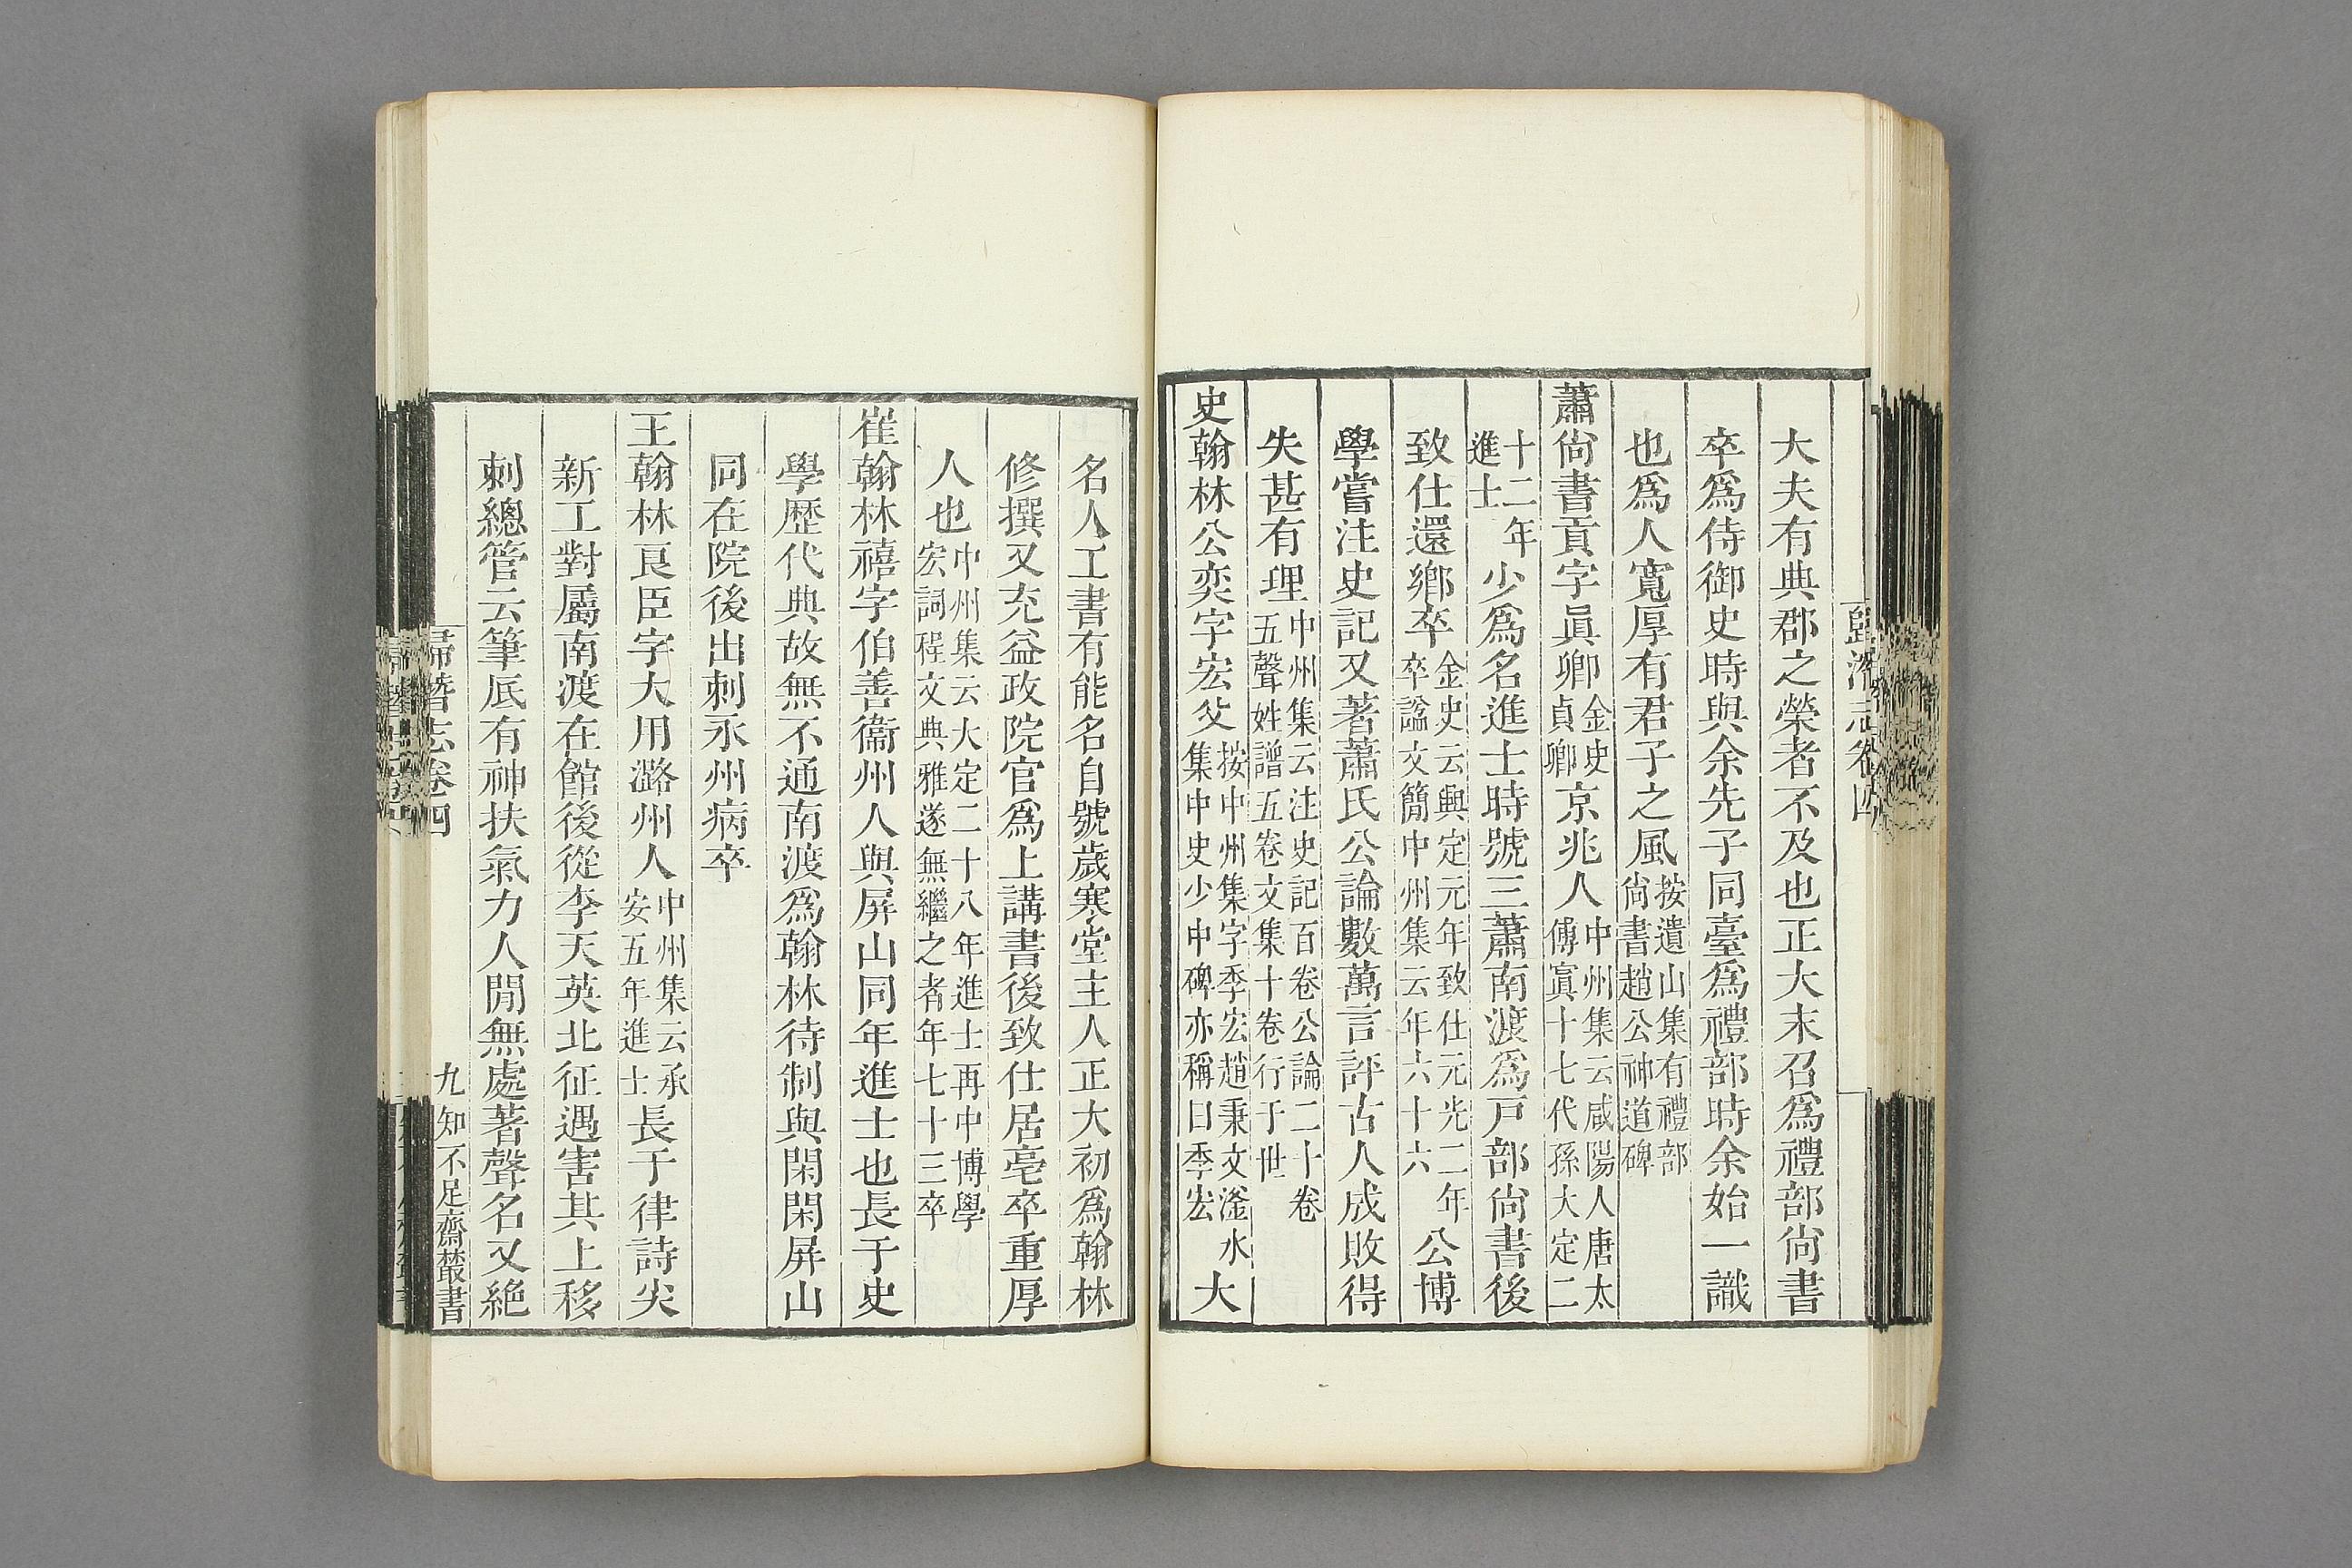 歸潛志卷四
大夫有典郡之榮者不及也正大末召爲禮部尚書
卒爲侍御史時與余先子同臺爲禮部時余始一識
也爲人寬厚有君子之風按遺山集有禮部尚書趙公神道碑
蕭尚書貢字眞卿金史貞卿京兆人中州集云咸陽人唐太傅寘十七代孫大定二
十二年進士少爲名進士時號三蕭南渡爲戸部尚書後
致仕還鄉卒金史云興定元年致仕元光二年卒諡文簡中州集云年六十六公博
學嘗注史記又著蕭氏公論數萬言評古人成敗得
失甚有理中州集云注史記百卷公論二十卷五聲姓譜五卷文集十卷行于世
史翰林公奕字宏父按中州集字季宏趙秉文滏水集中史少中碑亦稱曰季宏大
名人工書有能名自號歲寒堂主人正大初爲翰林
修撰又充益政院官爲上講書後致仕居亳卒重厚
人也中州集云大定二十八年進士再中博學宏詞程文典雅遂無繼之者年七十三卒
崔翰林禧字伯善衞州人與屏山同年進士也長于史
學歷代典故無不通南渡爲翰林待制與閑閑屏山
同在院後出刺永州病卒
王翰林良臣字大用潞州人中州集云承安五年進士長于律詩尖
新工對屬南渡在館後從李天英北征遇害其上移
刺總管云筆底有神扶氣力人閒無處著聲名又絶
歸潛志卷四
九
知不足齋叢書